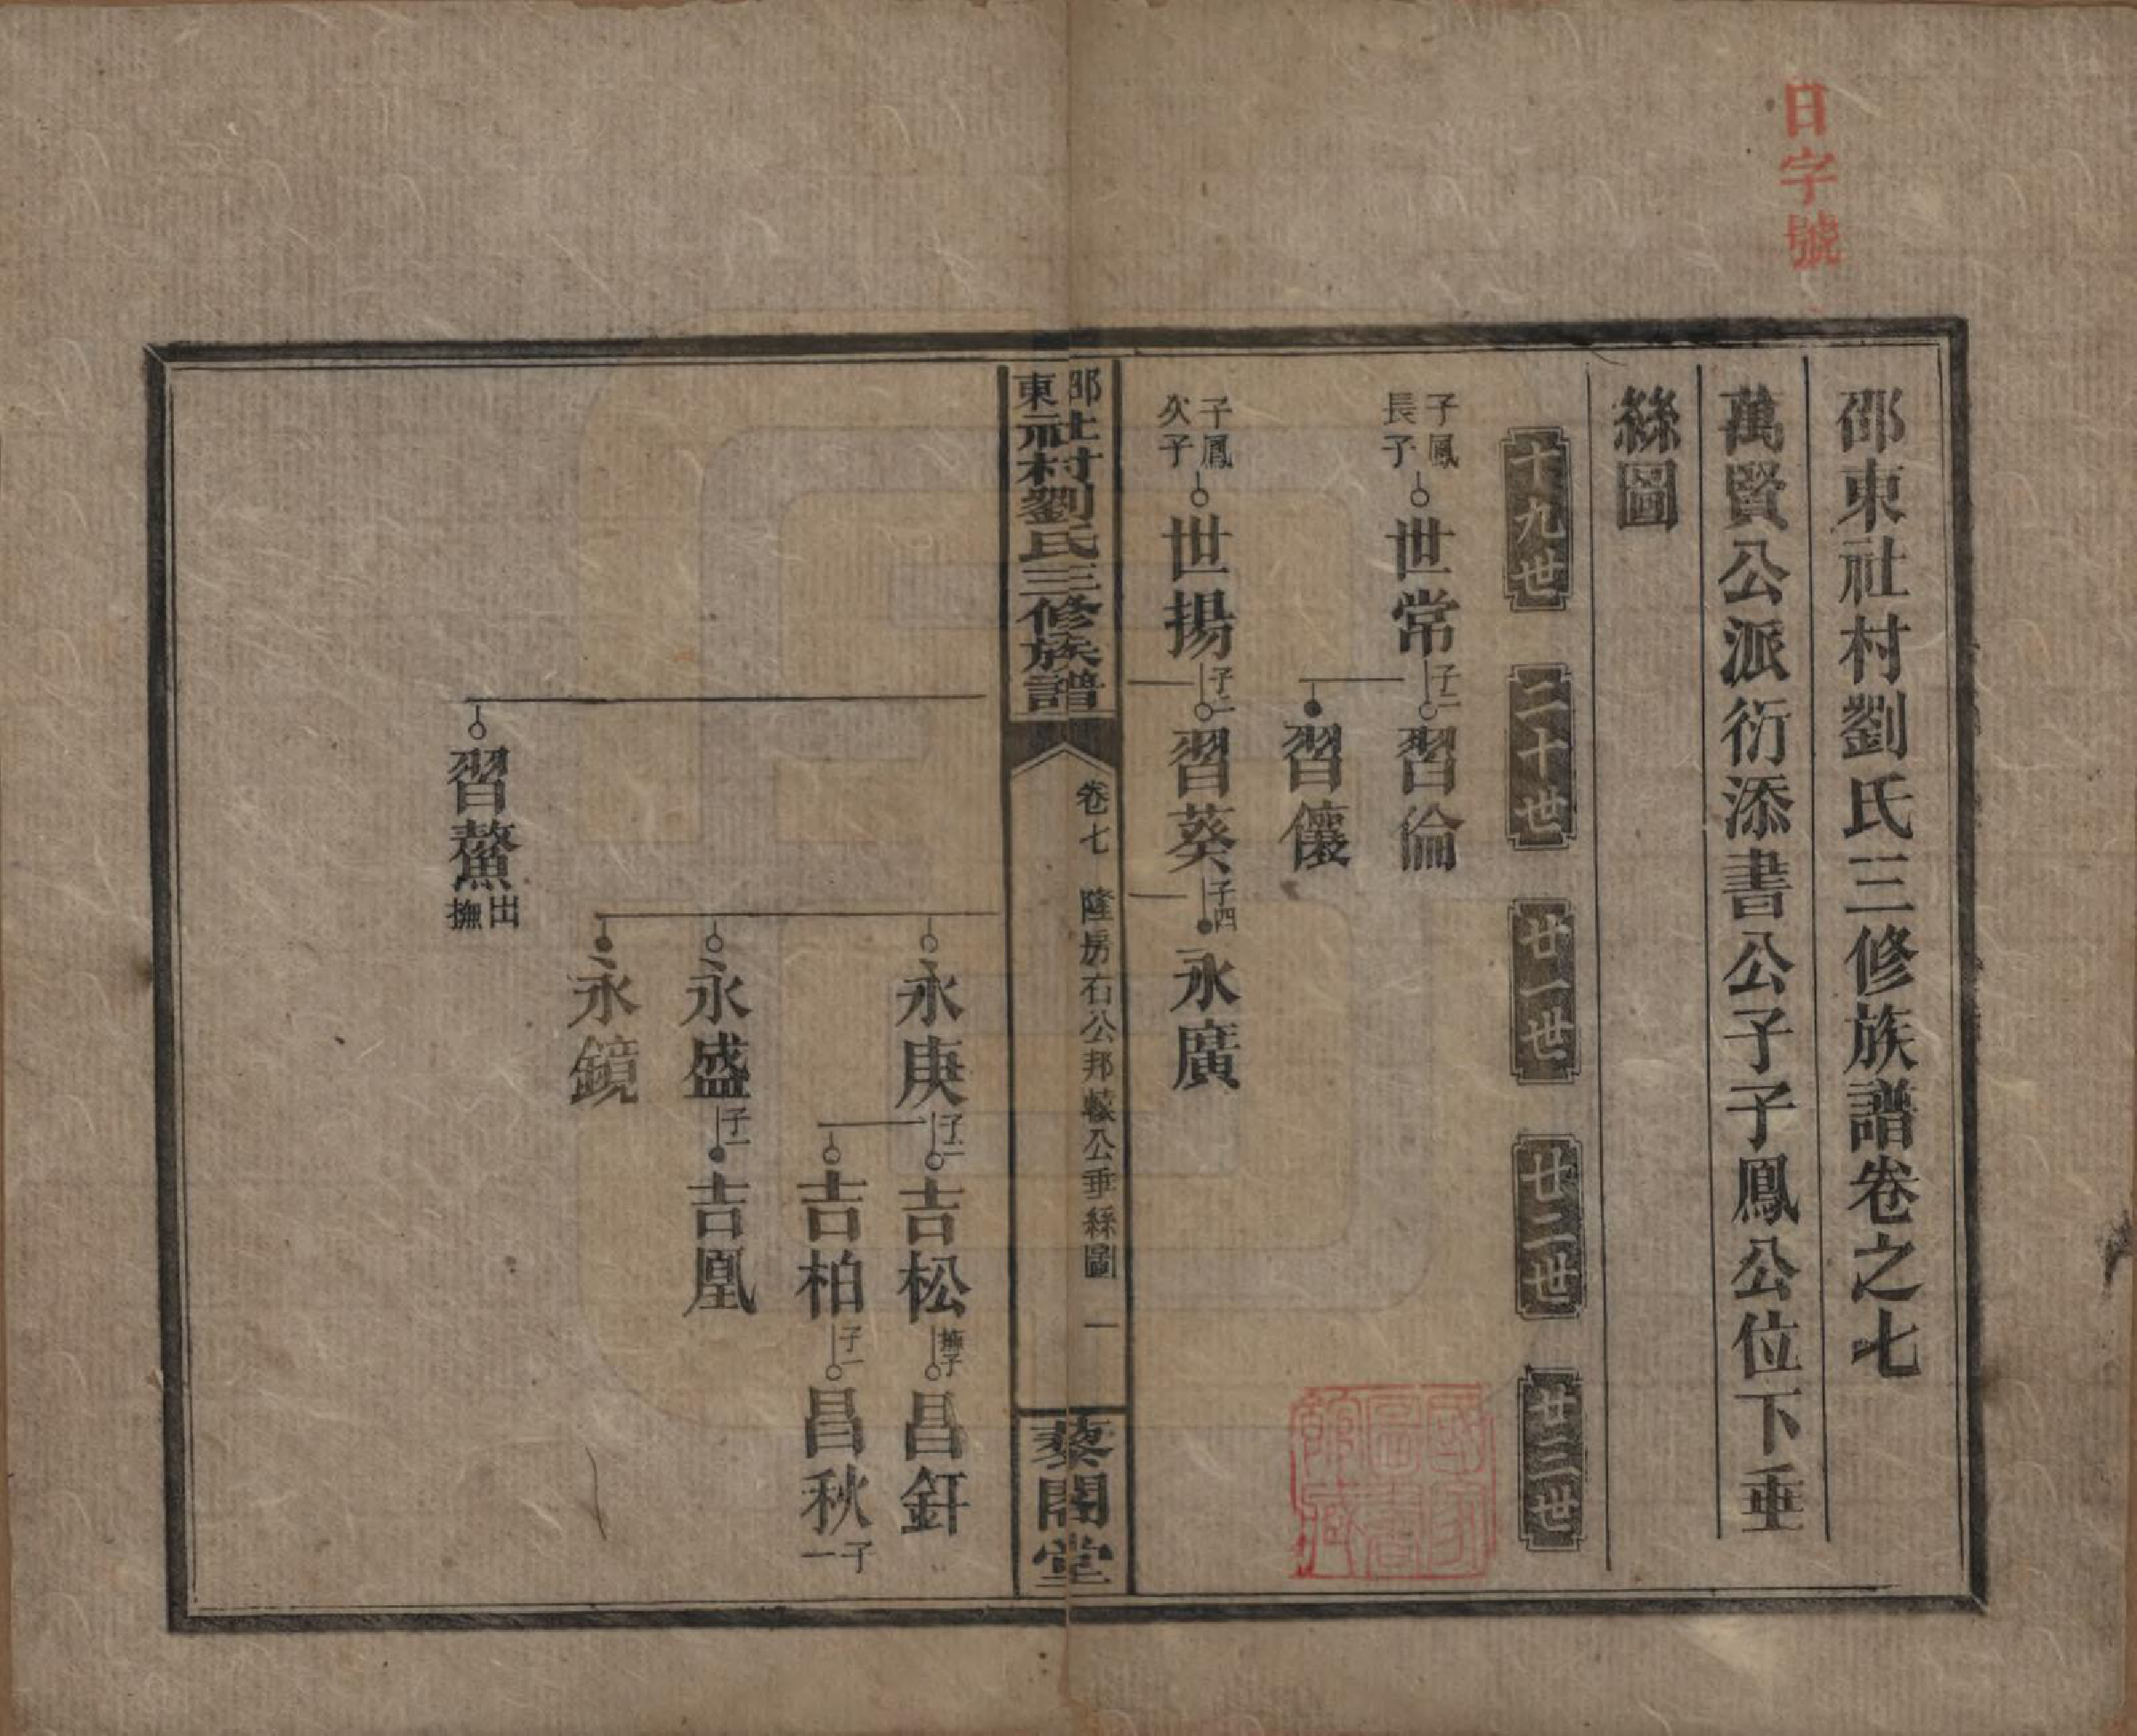 日字號
邵東社村劉氏三修族譜卷之七
萬賢公派衍添書公子子鳳公位下垂
絲圖
十九世
二十世
廿一世
廿二世
廿三世
子鳳長子
世常
子二
習倫
習儴
子鳳次子
世揚
子二
習葵
子四
永廣
邵東社村劉氏三修族譜
卷七
隆房石公邦公垂絲圖
一
藜閣堂
永庚
子二
吉松
撫子
昌釬
吉柏
子一
昌秋
子一
永盛
子一
吉凰
永鏡
習鰲
出撫